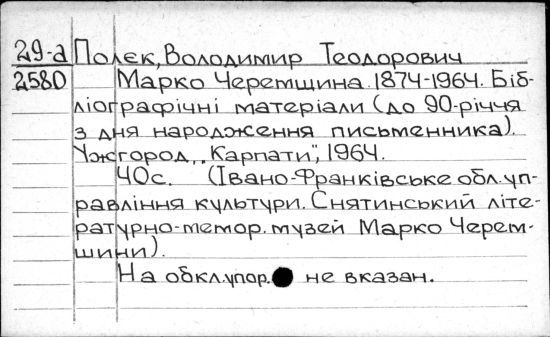 29-а Полєк, Володимир Теодорович
2580 Марко Черемшина. 1874-1964. Біб-
ліографічні матеріали (до 90-річчя
з дня народження письменника).
Ужгород, „Карпати", 1964.
40с. (Івано-Франківське обл. уп-
равління культури. Снятинський літе-
ратурно-мемор. музей Марко Черем-
шини).
На обкл. упор. не вказан.